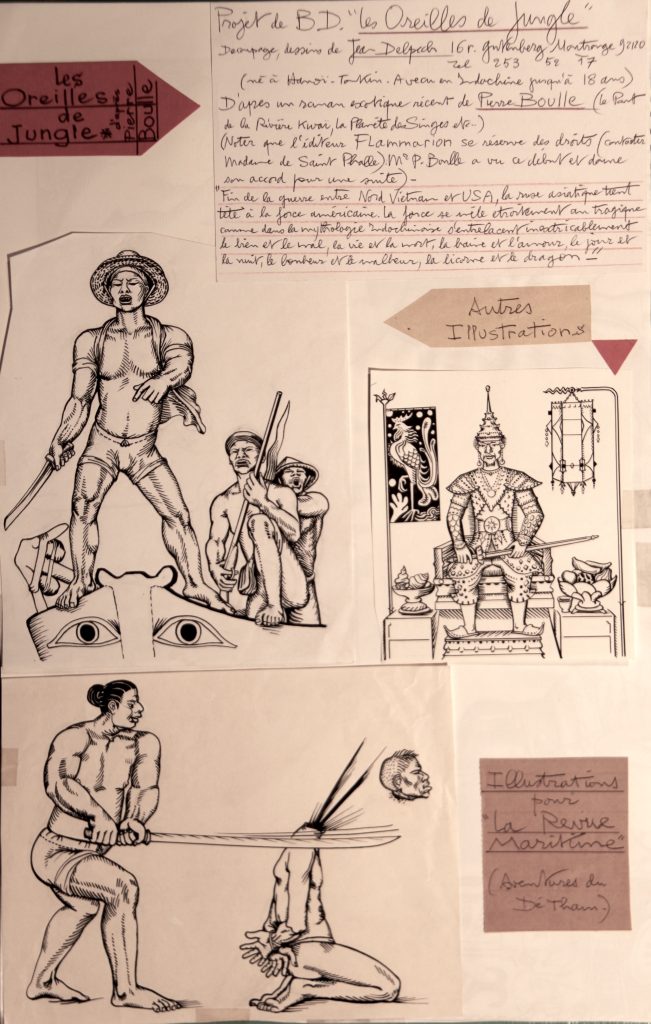 Projet de B.D. "Les Oreilles de Jungle"
Decoupage, dessins de Jean Delpech 16 r. gutenberg Montrouge 92120
Tel 253 52 17
(né à Hanoi-Tonkin. A vecu en Indochine jusqu'à 18 ans)
D'apres un roman exotique récent de Pierre Boulle (le Pont
de la Rivière Kwai, la Planète des Singes etc..)
(Noter que l'éditeur Flammarion se réserve des droits (contacter
Madame de Saint Phalle) Mr P. Boulle a vu ce debut et donne
son accord pour une suite) -
"Fin de la guerre entre Nord Vietnam et USA, la ruse asiatique tient
tête à la force américaine. La farce se mêle etroitement au tragique
comme dans la mythologie Indochinoise s'entrelacent inextricablement
le bien et le mal, la vie et la mort, la haine et l'amour, le jour et
la nuit, le bonheur et le malheur, la licorne et le dragon _!"
Les
Oreilles
de
Jungle *
d'après
Pierre
Boulle
Autres
Illustrations
Illustrations
pour
"La Revue
Maritime"
(Aventures du
Dé Tham.)